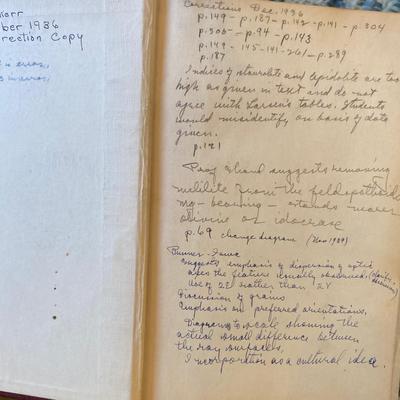 Kerr
ber 1936
rection Copy
error,
Corrections Dec. 1936
p.149 - p.187 - p.142 - p.141 - p.304
p.300 - p.94 - p.143
p.149 - 145 - 141 - 261 - p.289
p.187
Indices of staurolite and lepidolite are too
high as given in text and do not
agree with Larsen's tables. Students
would misidentify on basis of data
given.
p.121
suggests removing
melilite from the feldspathoids
my - becoming - stands nearer
olivine or idocrase
p.69 change diagram (Nov 1939)
Runner - Iowa
Suggests emphasis of dispersion of optic
axes the feature usually observed.
Use of 2E rather than 2V
Discussion of grains
Emphasis on preferred orientations.
Diagrams to scale showing the
actual small difference between
the ray surfaces,
Incorporation as a cultural idea.